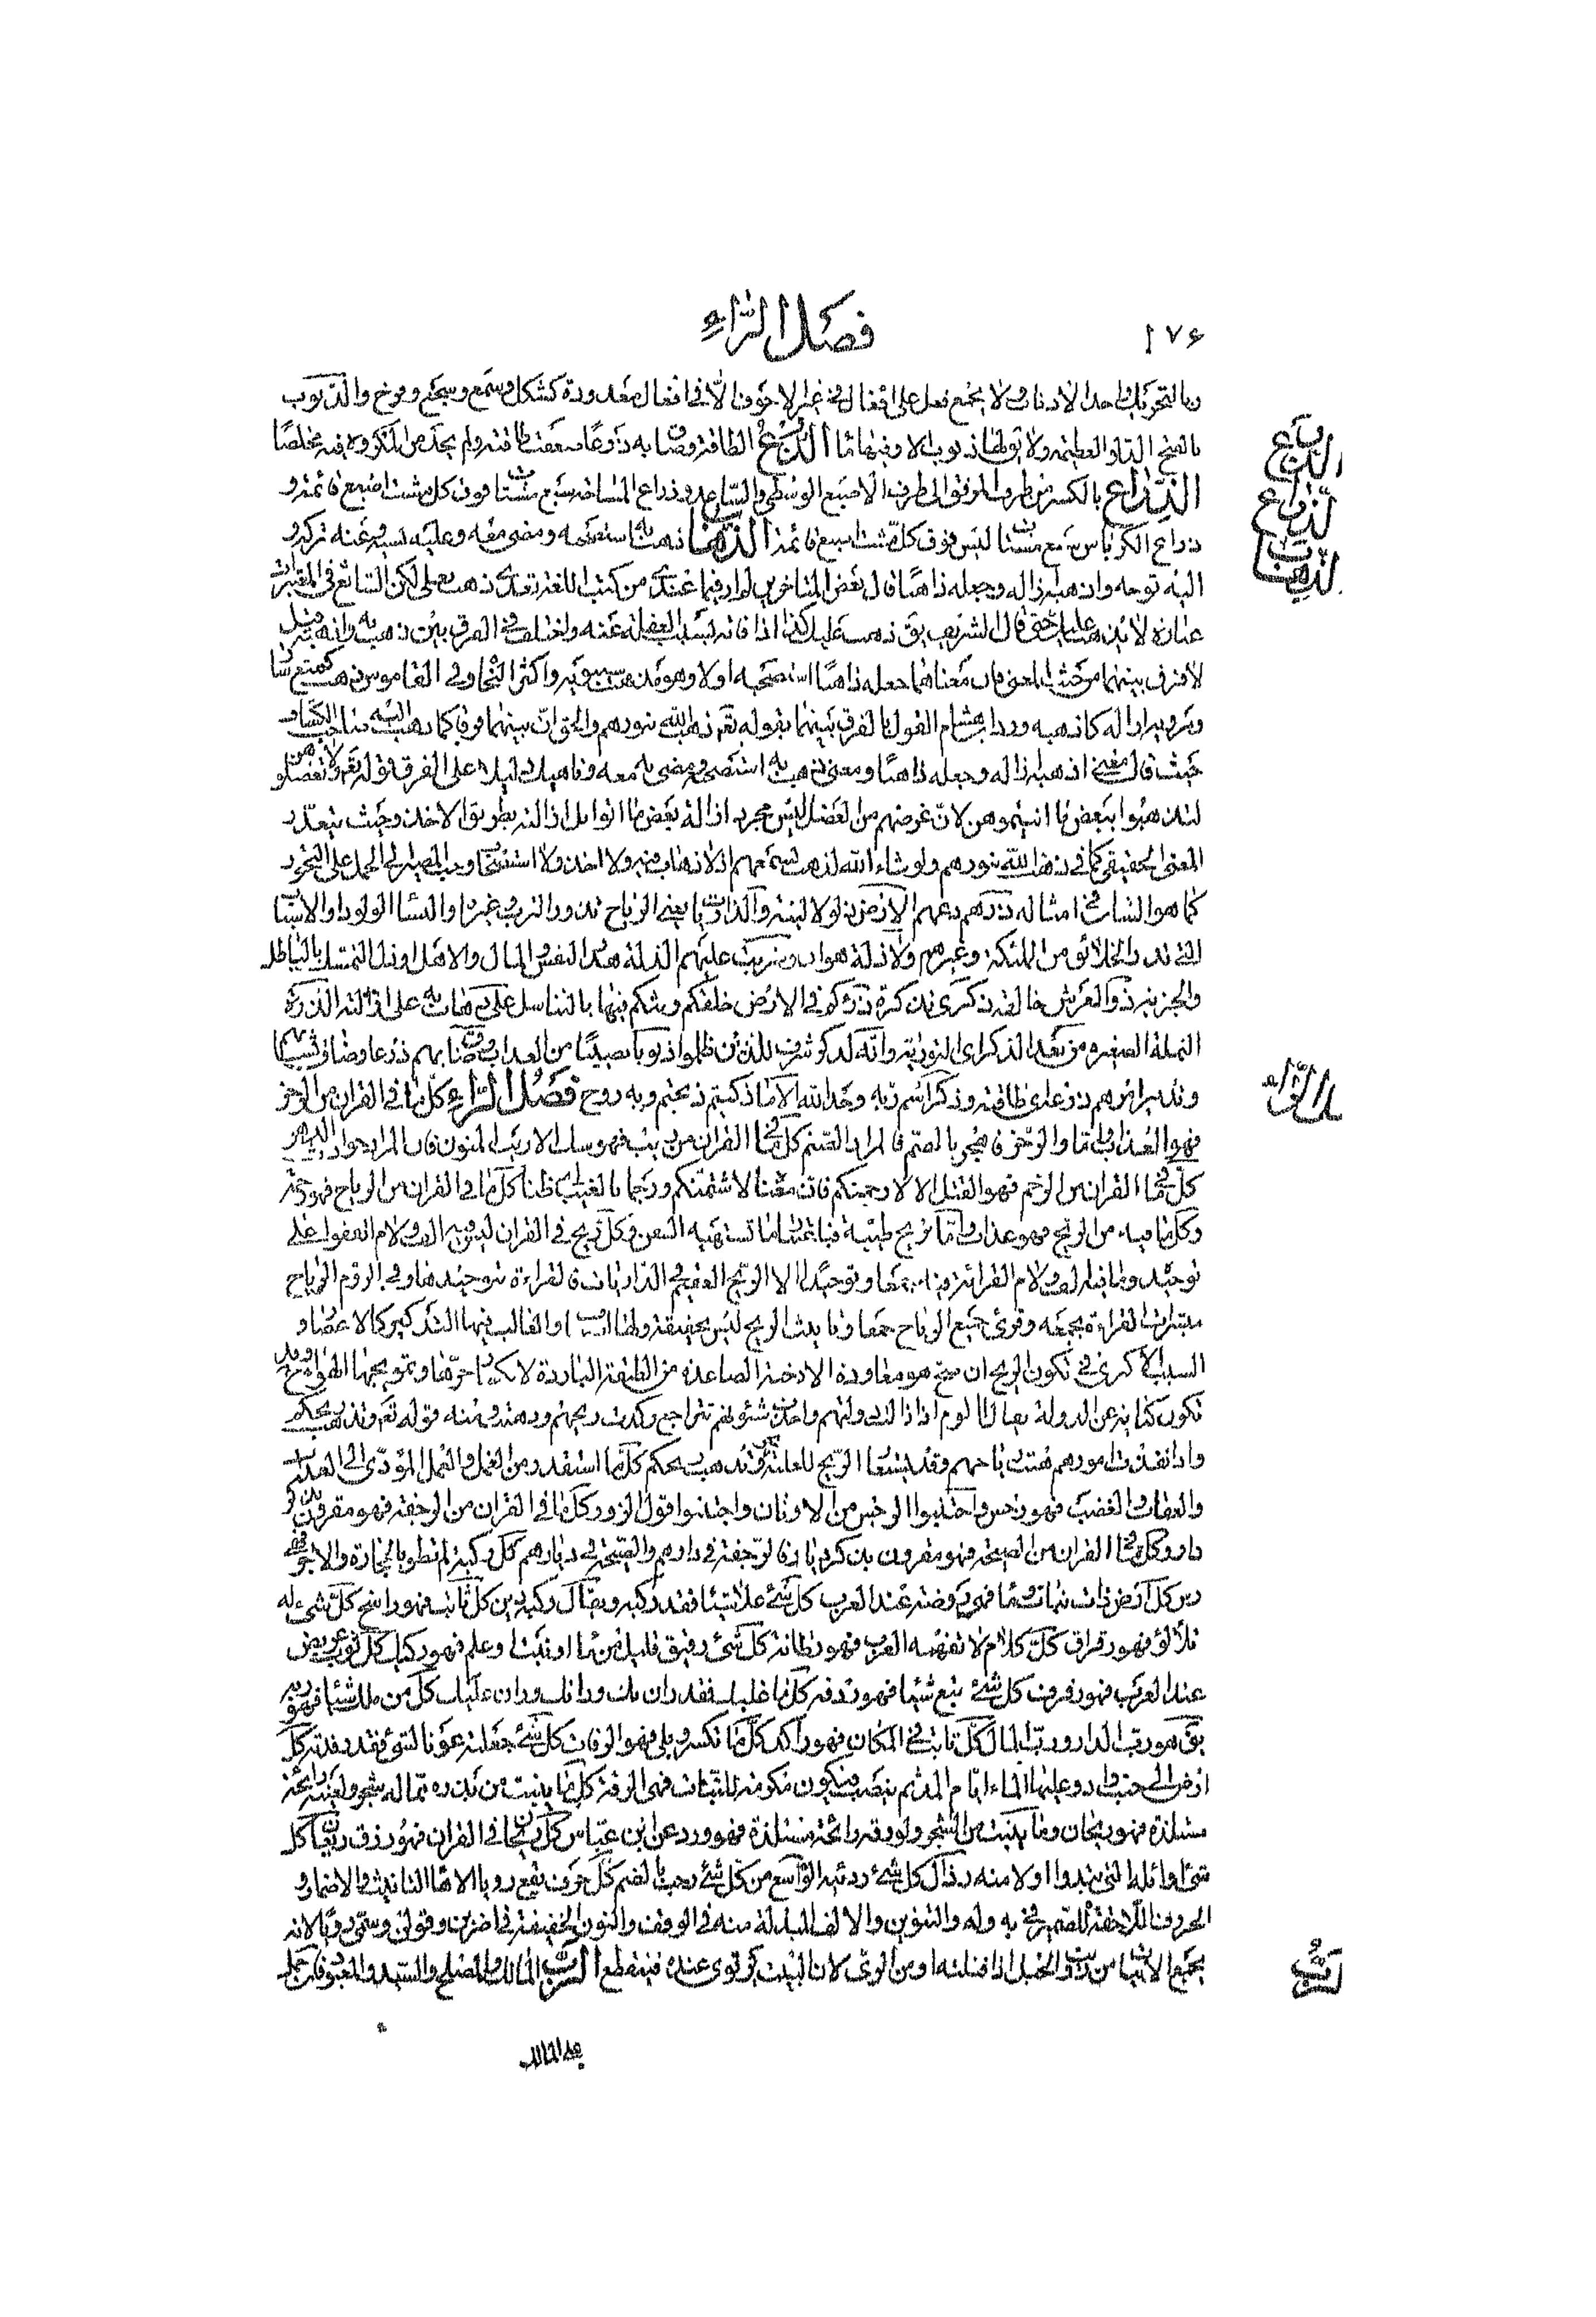 ١٧۶
فصل الراء
وبالتحريك واحد الاذناب ولا يجمع فعل على افعال في غير الاجوف الا في افعال معدودة كشكل وسمع وسجع وفرخ والذنوب
بالفتح الدلو العظيمة ولا يقال لها ذنوب الا وفيها ماء الذرع الطاقة وضاق به ذرعا ضعفت طاقته ولم يجد من المكروه فيه مخلصا
الذراع بالكسر من طرف المرفق الى طرف الاصبع الوسطى والساعد وذراع المساحة سبع مشتات فوق كل مشت اصبع قائمة و
ذراع الكرباس سبع مشتات ليس فوق كل مشت اصبع قائمة الذهاب ذهب به استصحبه ومضى معه وعليه نسيه وعنه تركه و
اليه توجه واذهبه ازاله وجعله ذاهبا قال بعض المتأخرين لم ار فيما عندي من كتب اللغة تعدية ذهب بعلى لكن الشائع في المعتبرات
عبارة لا يذهب عليك حتى قال الشريف يق ذهب عليك كذا اذا فاته بسبب الغفلة عنه واختلف في الفرق بين ذهب به واذهبه قيل
لا فرق بينهما من حيث المعنى فان معناهما جعله ذاهبا استصحبه اولا وهو مذهب سيبويه واكثر النحاة وفي القاموس ذهب كمنع سار
ومر وبه ازاله كاذهبه ورد ابن هشام القول بالفرق بينهما بقوله تع ذهب الله بنورهم والحق ان بينهما فرقا كما ذهب اليه صاحب الكشاف
حيث قال معنى اذهبه ازاله وجعله ذاهبا ومعنى ذهب به استصحبه ومضى به معه وناهيك دليلا على الفرق قوله تع ولا تعضلوهن
لتذهبوا ببعض ما اتيتموهن لان غرضهم من العضل ليس مجرد ازالة بعض ما اتوا بل ازالته بطريق الاخذ وحيث يتعذر
المعنى الحقيقي كما في ذهب الله بنورهم ولو شاء الله لذهب بسمعهم اذ لا ذهاب فيه ولا اخذ ولا استصحاب وجب المصير الى الحمل على التجوز
كما هو الشان في امثاله ذرهم دعهم الارض ذلولا لينة والذاريات يعني الرياح تذرو التراب وغيره او النساء الولود او الاسباب
التي تذر الخلائق من الملئكة وغيرهم ولا ذلة هوان وضربت عليهم الذلة هدر النفس والمال والاهل او ذل التمسك بالباطل
والجزية ذو العرش خالقه ذكرى تذكرة ذرأكم في الارض خلقكم وبثكم فيها بالتناسل على ذهاب به على ازالته الذرة
النملة الصغيرة من بعد الذكر اى التورية وانه لذكر شرف للذين ظلموا ذنوبا نصيبا من العذاب وضاق بهم ذرعا وضاق بشأنهم
وتدبير امرهم ذرعه اى طاقته وذكر اسم ربه وحد الله الا ما ذكيتم ذبحتم وبه روح فصل الراء كل ما في القران من الرجز
فهو العذاب واما والرجز فاهجر بالضم فالمراد الصنم كل ما في القران من ريب فهو شك الا ريب المنون فان المراد حوادث الدهر
كل ما في القران من الرجم فهو القتل الا لارجمنك فان معناه لاشتمنك ورجما بالغيب اى ظنا كل ما في القران من الرياح فهو رحمة
وكل ما فيه من الريح فهو عذاب واما بريح طيبة فباعتبار ما تشتهيه السفن كل ريح في القران ليس فيه الف ولام اتفقوا على
توحيده وما فيه الف ولام القرائة فيه جمعا وتوحيدا الا الريح العقيم في الذاريات فالقراءة بتوحيدها وفي الروم الرياح
مبشرات القراءة بجمعه وقرئ جميع الرياح جمعا وتأنيث الريح ليس بحقيقة ولها اصناف والغالب فيها التذكير كالاعصار و
السبب الاكثرى في تكون الريح ان صح هو معاودة الادخنة الصاعدة من الطبقة الباردة لانكسار حرها وتموجها الهواء وقد
تكون كناية عن الدولة يقال لقوم اذا زالت دولتهم واخذت شئونهم تتراجع ركدت ريحهم وذهبت ومنه قوله تع وتذهب ريحكم
واذا نفذت امورهم هبت رياحهم وقد يستعار الريح للغلبة وتذهب ريحكم كل ما استقذر من العمل والعمل المؤدى الى العذاب
والعقاب والغضب فهو رجس فاجتنبوا الرجس من الاوثان واجتنبوا قول الزور كل ما في القران من الرجفة فهو مقرون بذكر
دار وكل ما في القران من الصيحة فهو مقرون بذكر ديار فالرجفة في دارهم والصيحة في ديارهم كل ركية لم تطو بالحجارة والاجر فهي
رس كل ارض ذات نبات وماء فهي روضة عند العرب كل شئ علا شيئا فقد ركبه ويقال ركبه دين كل ثابت فهو راسخ كل شئ له
تلألؤ فهو رقراق كل كلام لا تفهمه العرب فهو رطانة كل شئ رقيق قليل من ماء او نبت او علم فهو ركيك كل ثوب عريض
عند العرب فهو رفرف كل شئ يتبع شيئا فهو ردفه كل ما غلبك فقد ران بك ورانك وران عليك كل من ملك شيئا فهو ربه
يق هو رب الدار ورب المال كل ثابت في المكان فهو راكد كل ما تكسر وبلى فهو الرفات كل شئ جعلته عونا لشئ فقد رفدته كل
ارض الى جنب واد وعليها الماء ايام المد ثم ينضب فيكون مكرمة للنبات فهي الرقة كل ما ينبت من بذره مما له شجر ولعينه رائحة
مستلذة فهو ريحان وما ينبت من الشجر ولورقه رائحة مستلذة فهو ورد عن ابن عباس كل ريحان في القران فهو رزق ريحان كل
شئ اوائله التي تبدوا اولا منه رذال كل شئ رديه الواسع من كل شئ رحب بالضم كل حرف يقع رويا الا هاء التانيث والاضمار و
الحروف اللاحقة للضمير في به وله والتنوين والالف المبدلة منه في الوقف والنون الخفيفة في اضربن وقولن وسمى رويا لانه
يجمع الابيات من رويت الحبل اذا فتلته او من الرى لان البيت يرتوى عنده فينقطع الرب المالك والمصلح والسيد والمعبود فان حمل
على المالك
الذرع
الذراع
الذهاب
الراء
رب